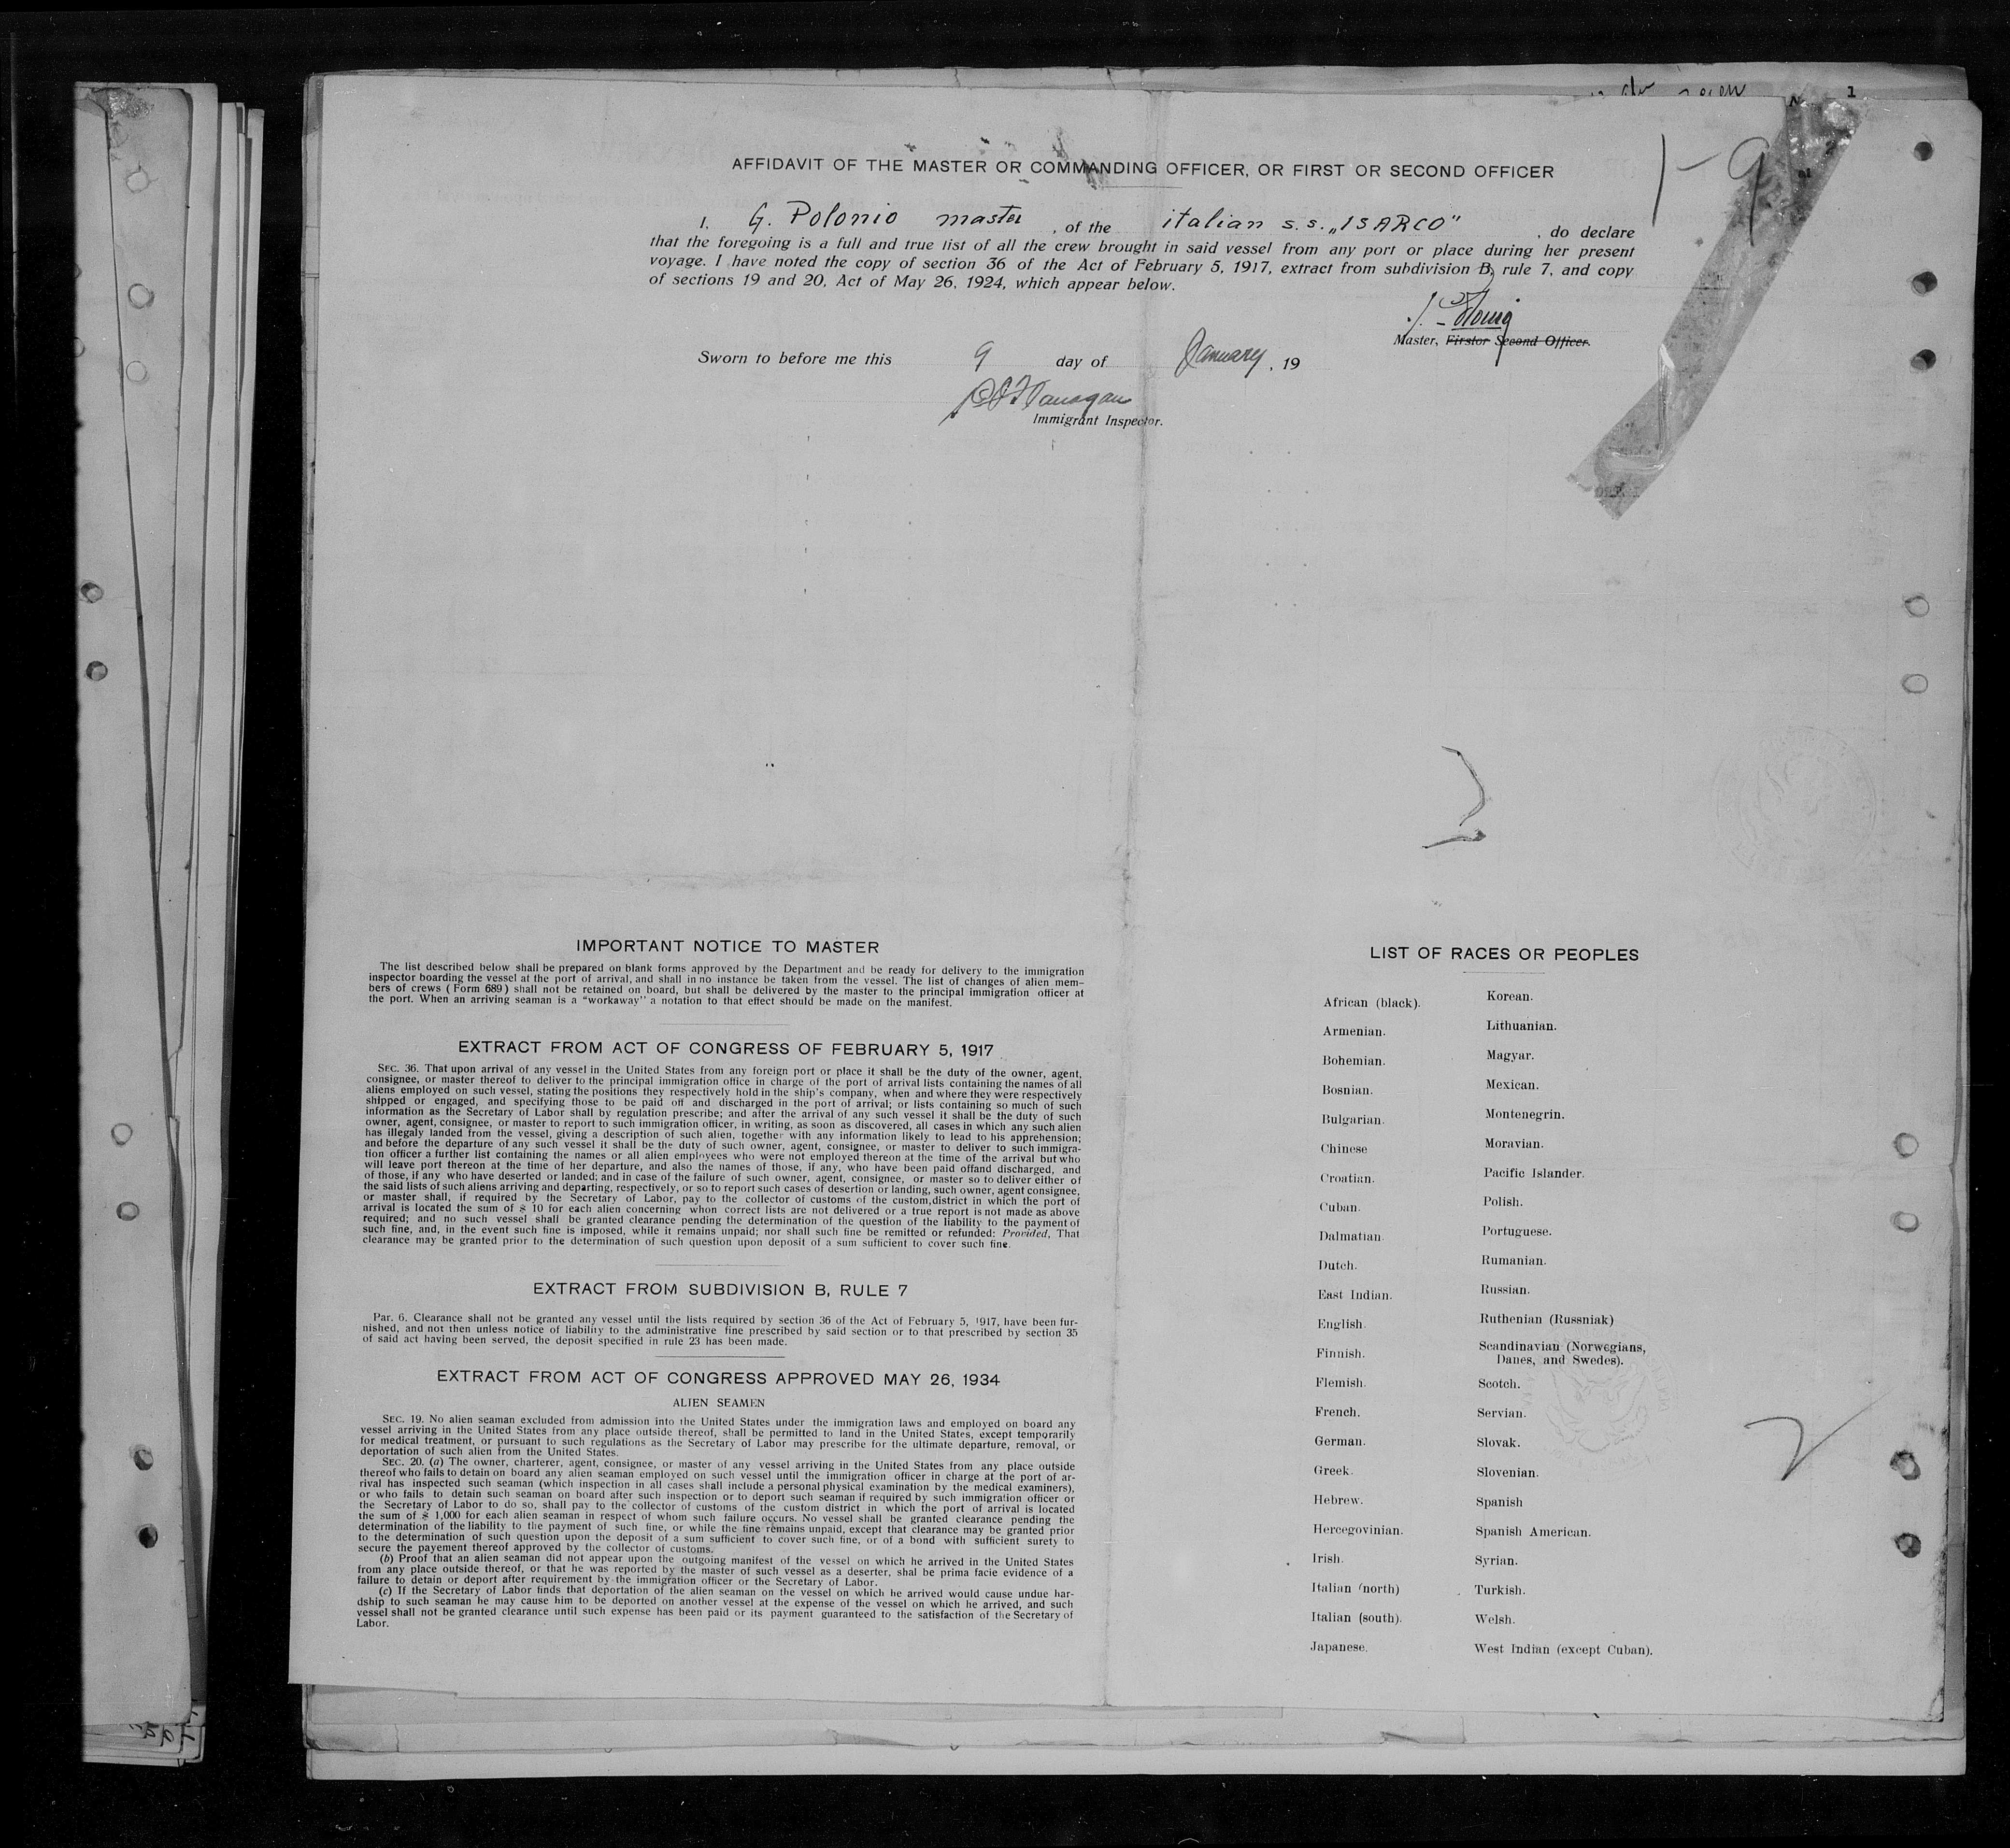 1
1-9
AFFIDAVIT OF THE MASTER OR COMMANDING OFFICER, OR FIRST OR SECOND OFFICER
I, G. Polonio master, of the italian s.s. „ISARCO", do declare
that the foregoing is a full and true list of all the crew brought in said vessel from any port or place during her present
voyage. I have noted the copy of section 36 of the Act of February 5, 1917, extract from subdivision B, rule 7, and copy
of sections 19 and 20, Act of May 26, 1924, which appear below.
Master, Firstor Second Officer.
Sworn to before me this 9 day of January, 19
Immigrant Inspector.
IMPORTANT NOTICE TO MASTER
The list described below shall be prepared on blank forms approved by the Department and be ready for delivery to the immigration
inspector boarding the vessel at the port of arrival, and shall in no instance be taken from the vessel. The list of changes of alien mem-
bers of crews (Form 689) shall not be retained on board, but shall be delivered by the master to the principal immigration officer at
the port. When an arriving seaman is a "workaway" a notation to that effect should be made on the manifest.
EXTRACT FROM ACT OF CONGRESS OF FEBRUARY 5, 1917
SEC. 36. That upon arrival of any vessel in the United States from any foreign port or place it shall be the duty of the owner, agent,
consignee, or master thereof to deliver to the principal immigration office in charge of the port of arrival lists containing the names of all
aliens employed on such vessel, stating the positions they respectively hold in the ship's company, when and where they were respectively
shipped or engaged, and specifying those to be paid off and discharged in the port of arrival; or lists containing so much of such
information as the Secretary of Labor shall by regulation prescribe; and after the arrival of any such vessel it shall be the duty of such
owner, agent, consignee, or master to report to such immigration officer, in writing, as soon as discovered, all cases in which any such alien
has illegaly landed from the vessel, giving a description of such alien, together with any information likely to lead to his apprehension;
and before the departure of any such vessel it shall be the duty of such owner, agent, consignee, or master to deliver to such immigra-
tion officer a further list containing the names or all alien employees who were not employed thereon at the time of the arrival but who
will leave port thereon at the time of her departure, and also the names of those, if any, who have been paid offand discharged, and
of those, if any who have deserted or landed; and in case of the failure of such owner, agent, consignee, or master so to deliver either of
the said lists of such aliens arriving and departing, respectively, or so to report such cases of desertion or landing, such owner, agent consignee,
or master shall, if required by the Secretary of Labor, pay to the collector of customs of the custom,district in which the port of
arrival is located the sum of $ 10 for each alien concerning whon correct lists are not delivered or a true report is not made as above
required; and no such vessel shall be granted clearance pending the determination of the question of the liability to the payment of
such fine, and, in the event such fine is imposed, while it remains unpaid; nor shall such fine be remitted or refunded: Provided, That
clearance may be granted prior to the determination of such question upon deposit of a sum sufficient to cover such fine.
EXTRACT FROM SUBDIVISION B, RULE 7
Par. 6. Clearance shall not be granted any vessel until the lists required by section 36 of the Act of February 5, 1917, have been fur-
nished, and not then unless notice of liability to the administrative fine prescribed by said section or to that prescribed by section 35
of said act having been served, the deposit specified in rule 23 has been made.
EXTRACT FROM ACT OF CONGRESS APPROVED MAY 26, 1934
ALIEN SEAMEN
SEC. 19. No alien seaman excluded from admission into the United States under the immigration laws and employed on board any
vessel arriving in the United States from any place outside thereof, shall be permitted to land in the United States, except temporarily
for medical treatment, or pursuant to such regulations as the Secretary of Labor may prescribe for the ultimate departure, removal, or
deportation of such alien from the United States.
SEC. 20. (a) The owner, charterer, agent, consignee, or master of any vessel arriving in the United States from any place outside
thereof who fails to detain on board any alien seaman employed on such vessel until the immigration officer in charge at the port of ar-
rival has inspected such seaman (which inspection in all cases shall include a personal physical examination by the medical examiners),
or who fails to detain such seaman on board after such inspection or to deport such seaman if required by such immigration officer or
the Secretary of Labor to do so, shall pay to the collector of customs of the custom district in which the port of arrival is located
the sum of $ 1,000 for each alien seaman in respect of whom such failure occurs. No vessel shall be granted clearance pending the
determination of the liability to the payment of such fine, or while the fine remains unpaid, except that clearance may be granted prior
to the determination of such question upon the deposit of a sum sufficient to cover such fine, or of a bond with sufficient surety to
secure the payement thereof approved by the collector of customs.
(b) Proof that an alien seaman did not appear upon the outgoing manifest of the vessel on which he arrived in the United States
from any place outside thereof, or that he was reported by the master of such vessel as a deserter, shal be prima facie evidence of a
failure to detain or deport after requirement by the immigration officer or the Secretary of Labor.
(c) If the Secretary of Labor finds that deportation of the alien seaman on the vessel on which he arrived would cause undue har-
dship to such seaman he may cause him to be deported on another vessel at the expense of the vessel on which he arrived, and such
vessel shall not be granted clearance until such expense has been paid or its payment guaranteed to the satisfaction of the Secretary of
Labor.
LIST OF RACES OR PEOPLES
African (black).
Armenian.
Bohemian.
Bosnian.
Bulgarian.
Chinese
Croatian.
Cuban.
Dalmatian.
Dutch.
East Indian.
English.
Finnish.
Flemish.
French.
German.
Greek.
Hebrew.
Hercegovinian.
Irish.
Italian (north)
Italian (south).
Japanese.
Korean.
Lithuanian.
Magyar.
Mexican.
Montenegrin.
Moravian.
Pacific Islander.
Polish.
Portuguese.
Rumanian.
Russian.
Ruthenian (Russniak)
Scandinavian (Norwegians,
Danes, and Swedes).
Scotch.
Servian.
Slovak.
Slovenian.
Spanish
Spanish American.
Syrian.
Turkish.
Welsh.
West Indian (except Cuban).
2